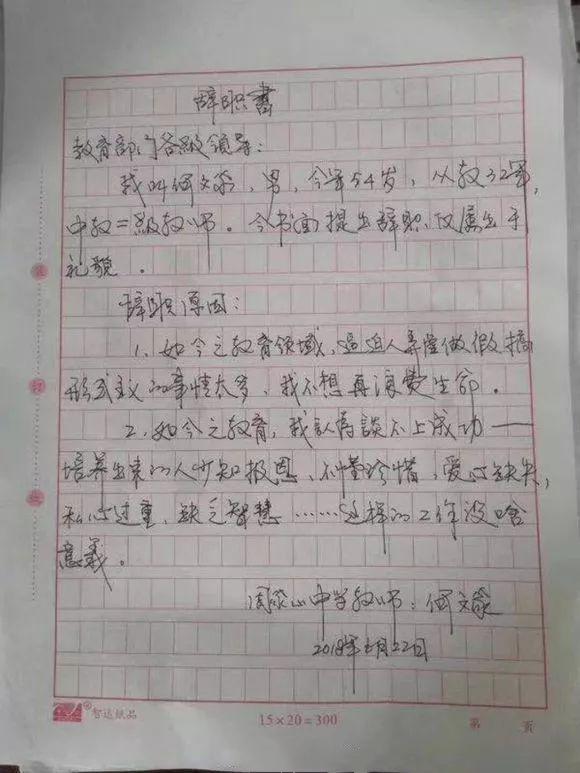 辞职書
教育部门各級领导：
我叫何文
，男，今年54岁，从教32年，
中教二級教师。今书面提出辞职，仅属出于
礼貌。
辞职原因：
1、如今之教育领域，逼迫人弄虚做假搞
形式主义的事情太多，我不想再浪费生命。
2、如今之教育，我认為談不上成功——
培养出来的人少知报恩、不懂珍惜，爱心缺失，
私心过重，缺乏智慧……这样的工作没啥
意義。
中学教师：何文
2018年
月22日
装
订
线
智达纸品
15×20=300
第 页